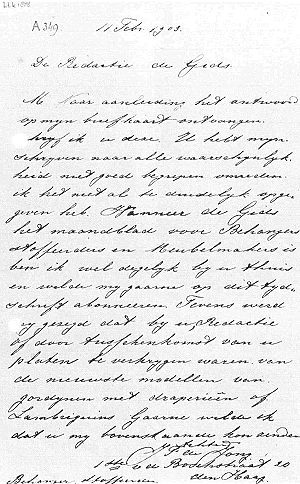 A 349
11 Febr. 1903.
De Redactie de Gids.
M Naar aanleiding het antwoord
op myn briefkaart ontvangen
ik u deze. U hebt myn
schryven naar alle waarschynlyk
heid niet goed begrepen omreden
ik het niet al te duidelyk opge
geven heb. Wanneer de Gids
het maandblad voor Behangers
Stoffeerders en Meubelmakers is
ben ik wel degelyk by u thuis
en wilde my gaarne op dit tyd-
schrift abonneeren. Tevens werd
my gezegd dat by u Redactie
of door tusschenkomst van u
platen te verkrygen waren van
de nieuwste modellen van
gordynen met draperieën of
Lambrequins Gaarne wilde ik
dat u my bovenstaande kon zenden
de Jong
1ste 20
Behanger Stoffeerder den Haag